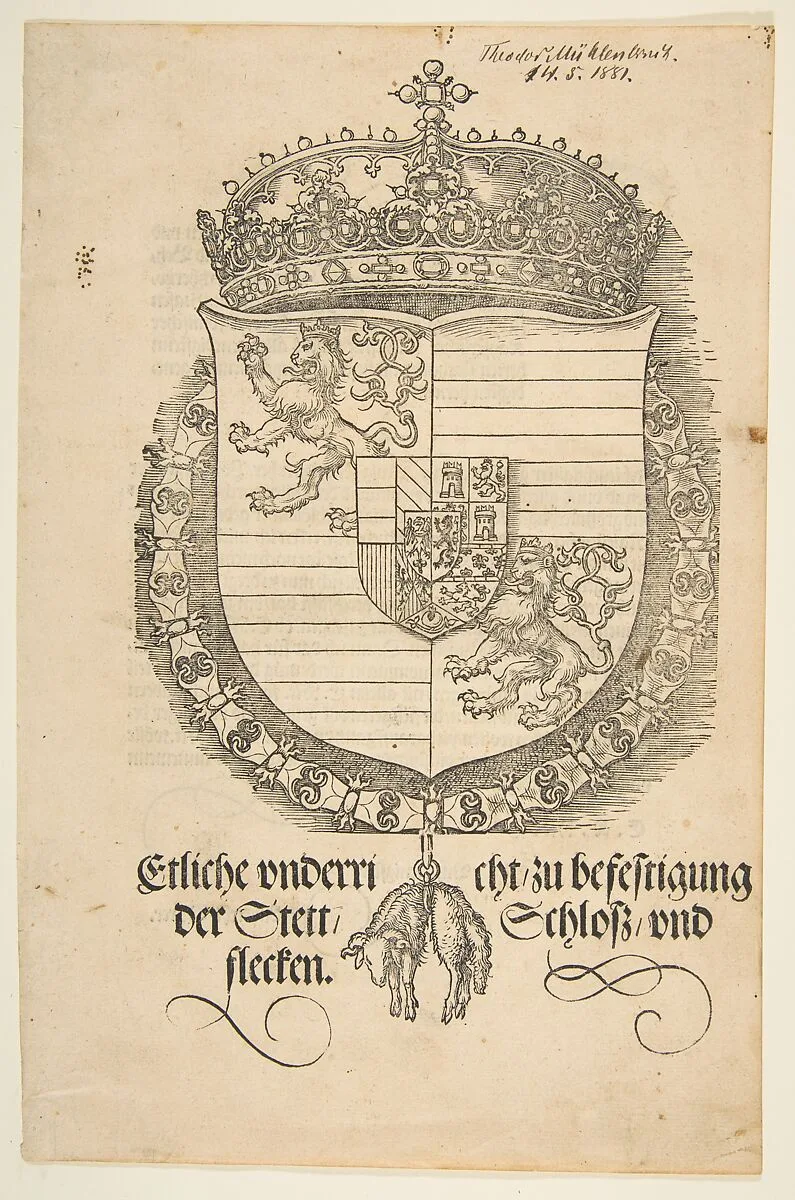 Theodor Mühlenbruch.
14. 5. 1881.
Etliche vnderricht/zu befestigung
der Stett/ Schloß/vnd
flecken.